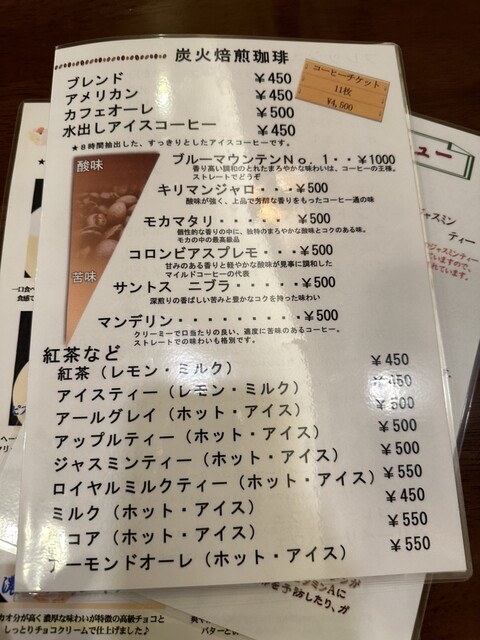 炭火焙煎珈琲
ブレンド ￥450
アメリカン ￥450
カフェオーレ ￥500
水出しアイスコーヒー ￥450
★８時間抽出した、すっきりとしたアイスコーヒーです。
コーヒーチケット
11枚
￥4,500
酸味
苦味
ブルーマウンテンＮｏ．１・・￥1000
香り高い調和のとれたまろやかな味わいは、コーヒーの王様。
ストレートでどうぞ
キリマンジャロ・・・￥500
酸味が強く、上品で芳醇な香りをもったコーヒー通の味
モカマタリ・・・・・￥500
個性的な香りの中に、独特のまろやかな酸味とコクのある味。
モカの中の最高級品
コロンビアスプレモ・・・￥500
甘みのある香りと軽やかな酸味が見事に調和した
マイルドコーヒーの代表
サントス ニブラ・・・・・￥500
深煎りの香ばしい苦みと豊かなコクを持った味わい
マンデリン・・・・・・・・・￥500
クリーミーで口当たりの良い、適度に苦味のあるコーヒー。
ストレートでの味わいも格別です。
紅茶など
紅茶（レモン・ミルク） ￥450
アイスティー（レモン・ミルク） ￥450
アールグレイ（ホット・アイス） ￥500
アップルティー（ホット・アイス） ￥500
ジャスミンティー（ホット・アイス） ￥500
ロイヤルミルクティー（ホット・アイス） ￥550
ミルク（ホット・アイス） ￥450
コア（ホット・アイス） ￥550
アーモンドオーレ（ホット・アイス） ￥550
ュー
ジャスミン
ティー
のジャスミンティー
ていますので、
れています。
一口食べ
食感で
カオ分が高く濃厚な味わいが特徴の高級チョコと
しっとりチョコクリームで仕上げました♪
ンＡに
を予防したり、ガ
バターと